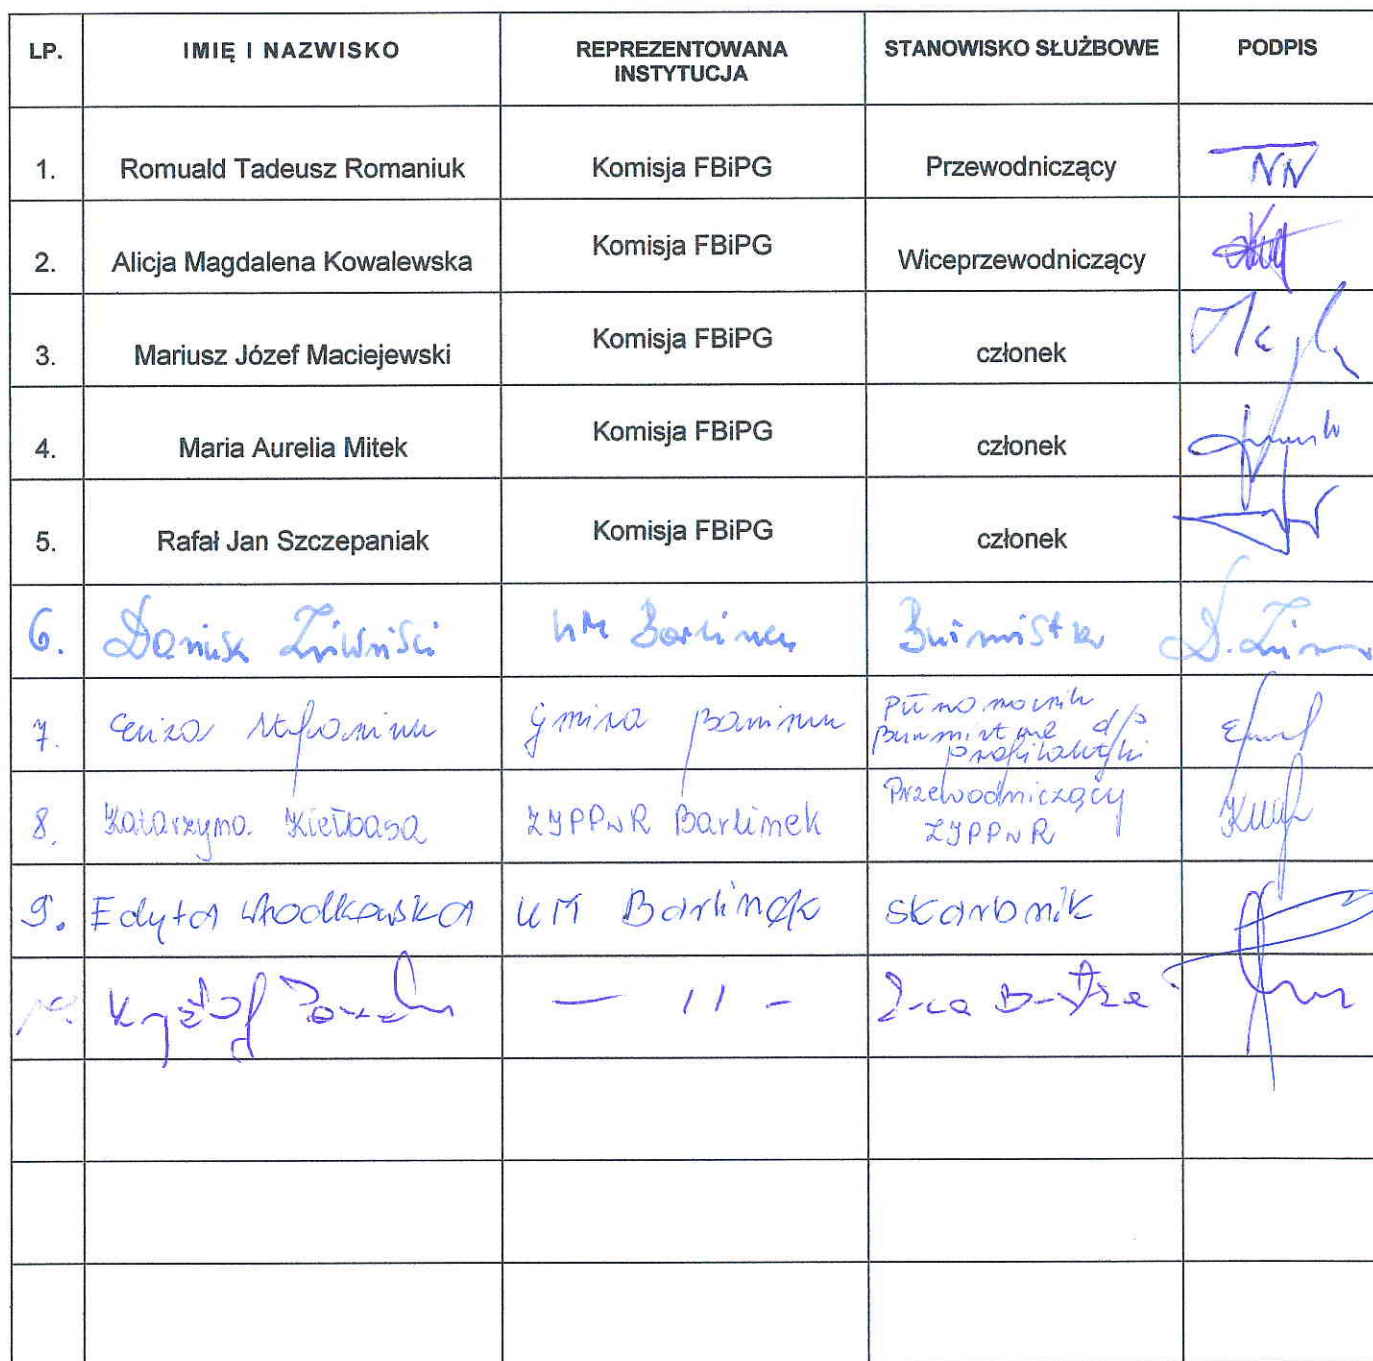 LP. IMIĘ I NAZWISKO REPREZENTOWANA INSTYTUCJA STANOWISKO SŁUŻBOWE PODPIS
1. Romuald Tadeusz Romaniuk Komisja FBiPG Przewodniczący
2. Alicja Magdalena Kowalewska Komisja FBiPG Wiceprzewodniczący
3. Mariusz Józef Maciejewski Komisja FBiPG członek
4. Maria Aurelia Mitek Komisja FBiPG członek
5. Rafał Jan Szczepaniak Komisja FBiPG członek
6. UM Barlinek Burmistrz
7. Gmina Barlinek Pełnomocnik Burmistrza d/s profilaktyki
8. Katarzyna Kiełbasa Barlinek Przewodniczący
9. Edyta UM Barlinek skarbnik
10. Krzysztof — 11 - Z-ca